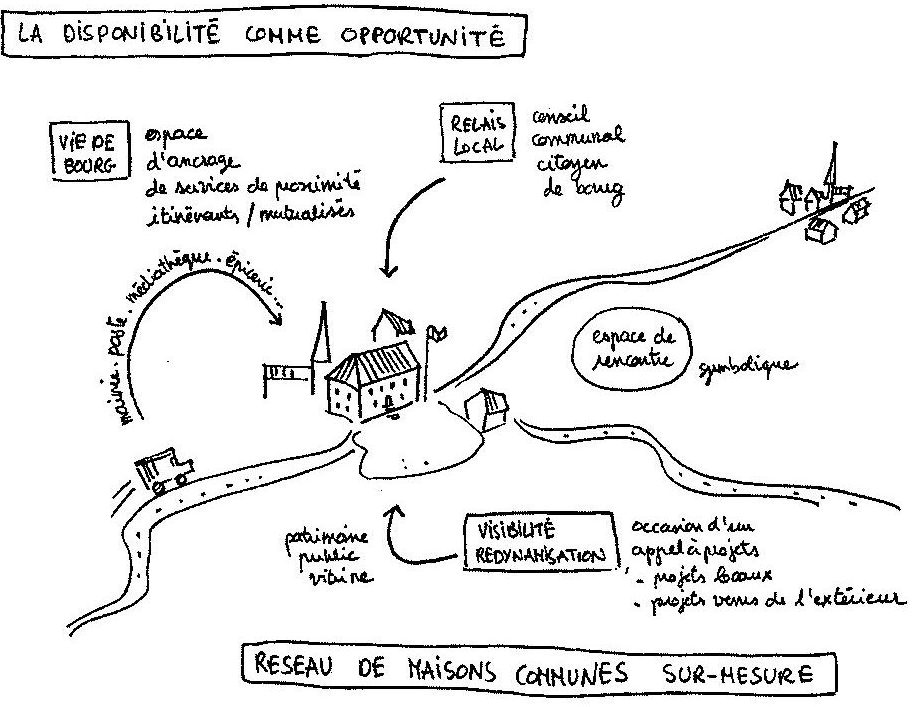 LA DISPONIBILITÉ COMME OPPORTUNITÉ
VIE DE
BOURG
espace
d'ancrage
de services de proximité
itinérants / mutualisés
RELAIS
LOCAL
conseil
communal
citoyen
de bourg
mairie. poste. médiathèque. épicerie...
espace de
rencontre
symbolique
patrimoine
public
vitrine
VISIBILITÉ
REDYNAMISATION
occasion d'un
appel à projets
- projets locaux
- projets venus de l'extérieur
RESEAU DE MAISONS COMMUNES SUR-MESURE